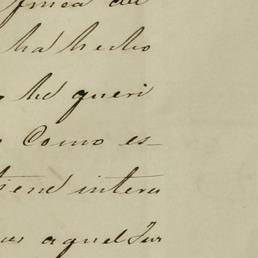 finca de
ha hecho
he queri
Como es-
tiene interes
aquel Jur